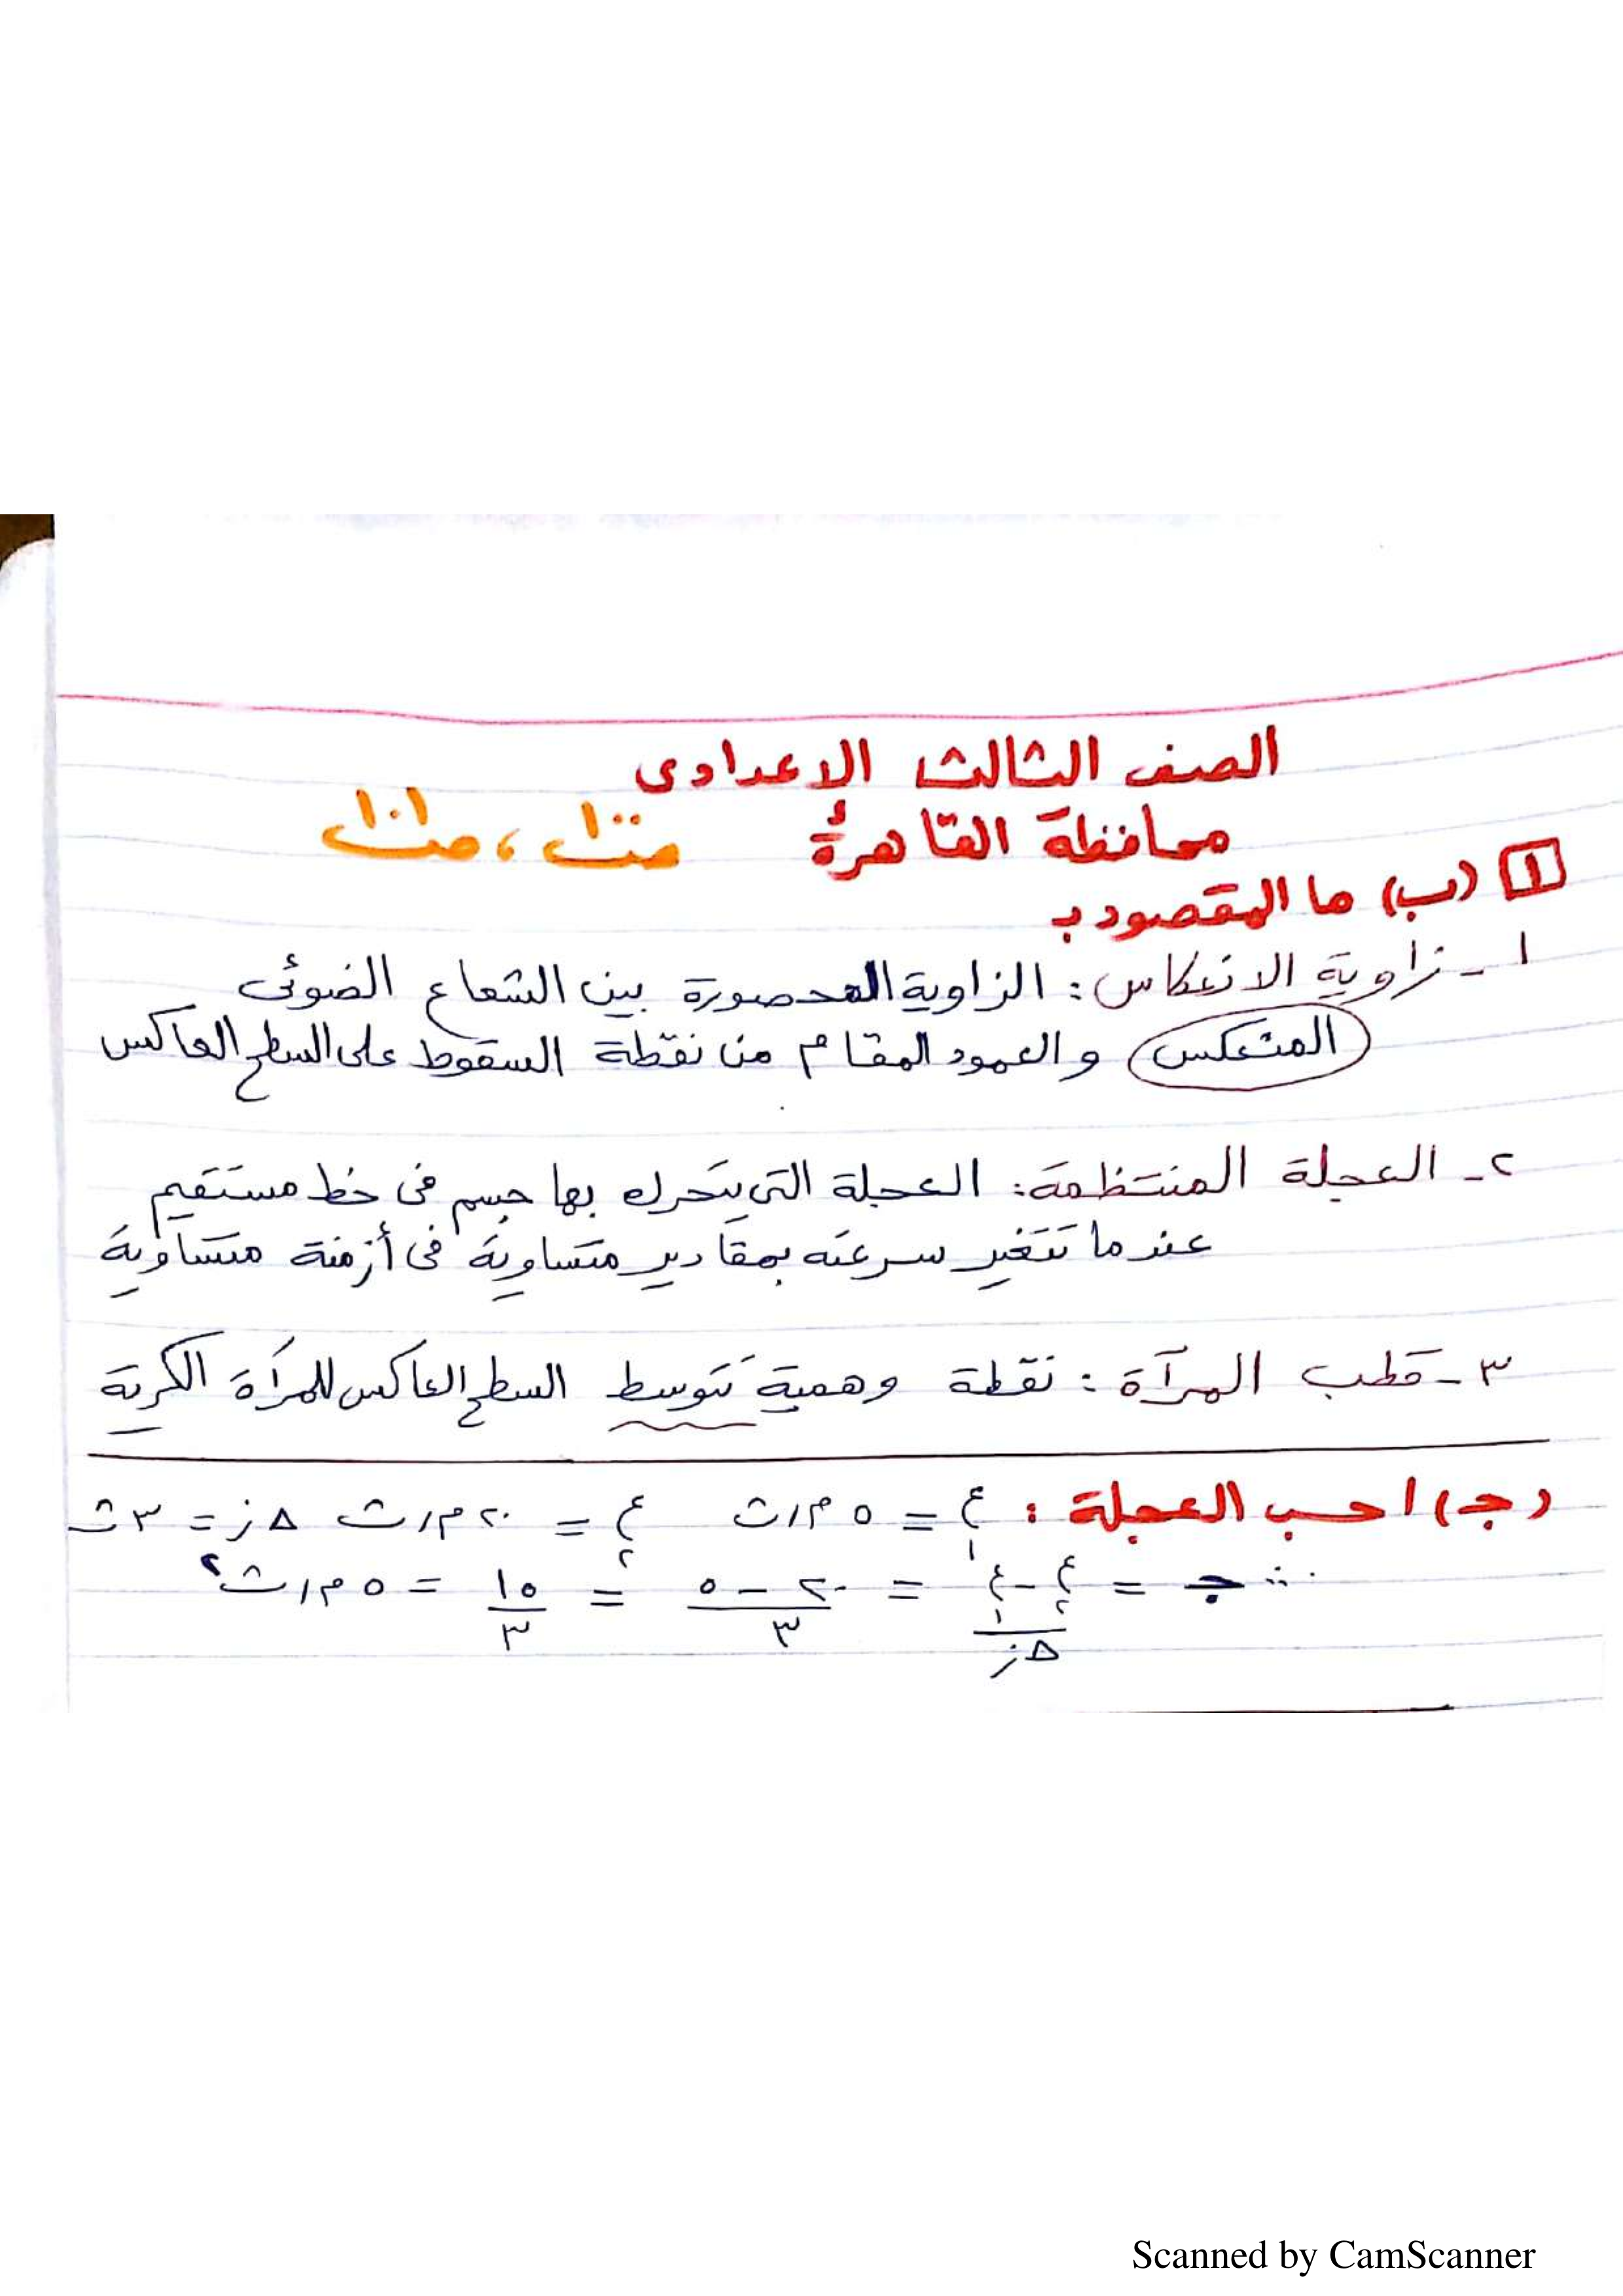 الصف الثالث الاعدادى
محافظة القاهرة صـ١٠٠ ، صـ١٠١
١ (ب) ما المقصود بـ
١- زاوية الانعكاس: الزاوية المحصورة بين الشعاع الضوئى
(المنعكس) والعمود المقام من نقطة السقوط على السطح العاكس
٢- العجلة المنتظمة: العجلة التى يتحرك بها جسم فى خط مستقيم
عندما تتغير سرعته بمقادير متساوية فى أزمنة متساوية
٣- قطب المرآة: نقطة وهمية تتوسط السطح العاكس للمرآة الكرية
(جـ) احسب العجلة: ع١ = ٥ م/ث ع٢ = ٢٠ م/ث Δز = ٣ث
∴ جـ = (ع٢ - ع١)/Δز = (٢٠ - ٥)/٣ = ١٥/٣ = ٥ م/ث٢
Scanned by CamScanner